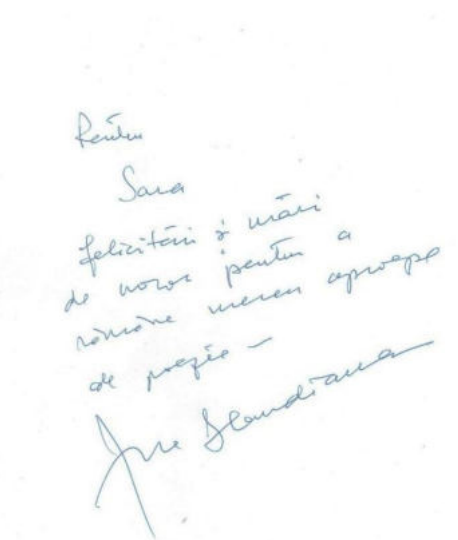 Pentru
Sara
felicitări și urări
de noroc pentru a
rămâne mereu aproape
de poezie –
Ana Blandiana